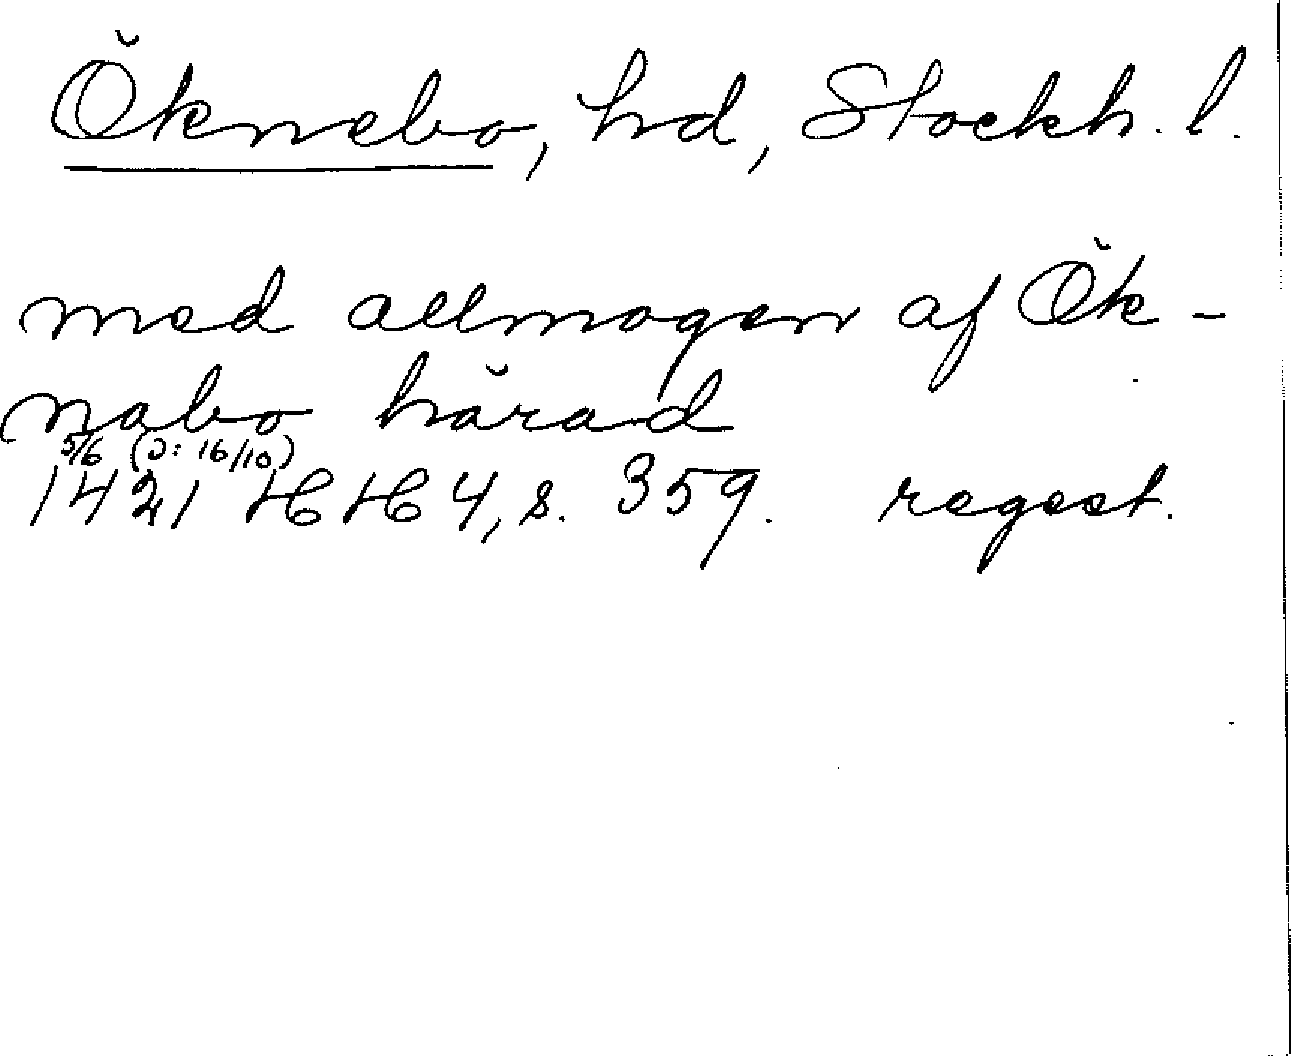 Öknebo, hd, Stockh. l.
med allmogen af Ök-
nabo härad
5/6 (ɔ: 16/10)
1421 HH 4, s. 359. regest.